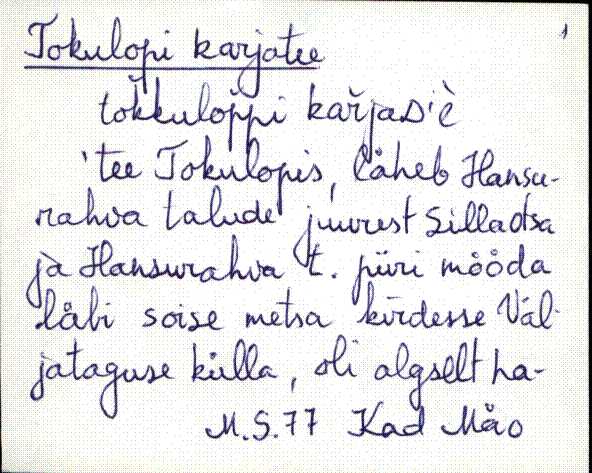 1
Tokulopi karjatee
tokkuloppi karjaD'è
'tee Tokulopis, läheb Hansu-
rahva talude juurest Sillaotsa
ja Hansurahva t. piiri mööda
läbi soise metsa kirdesse Väl-
jataguse külla, oli algselt ha-
M.S.77 Kad Mäo